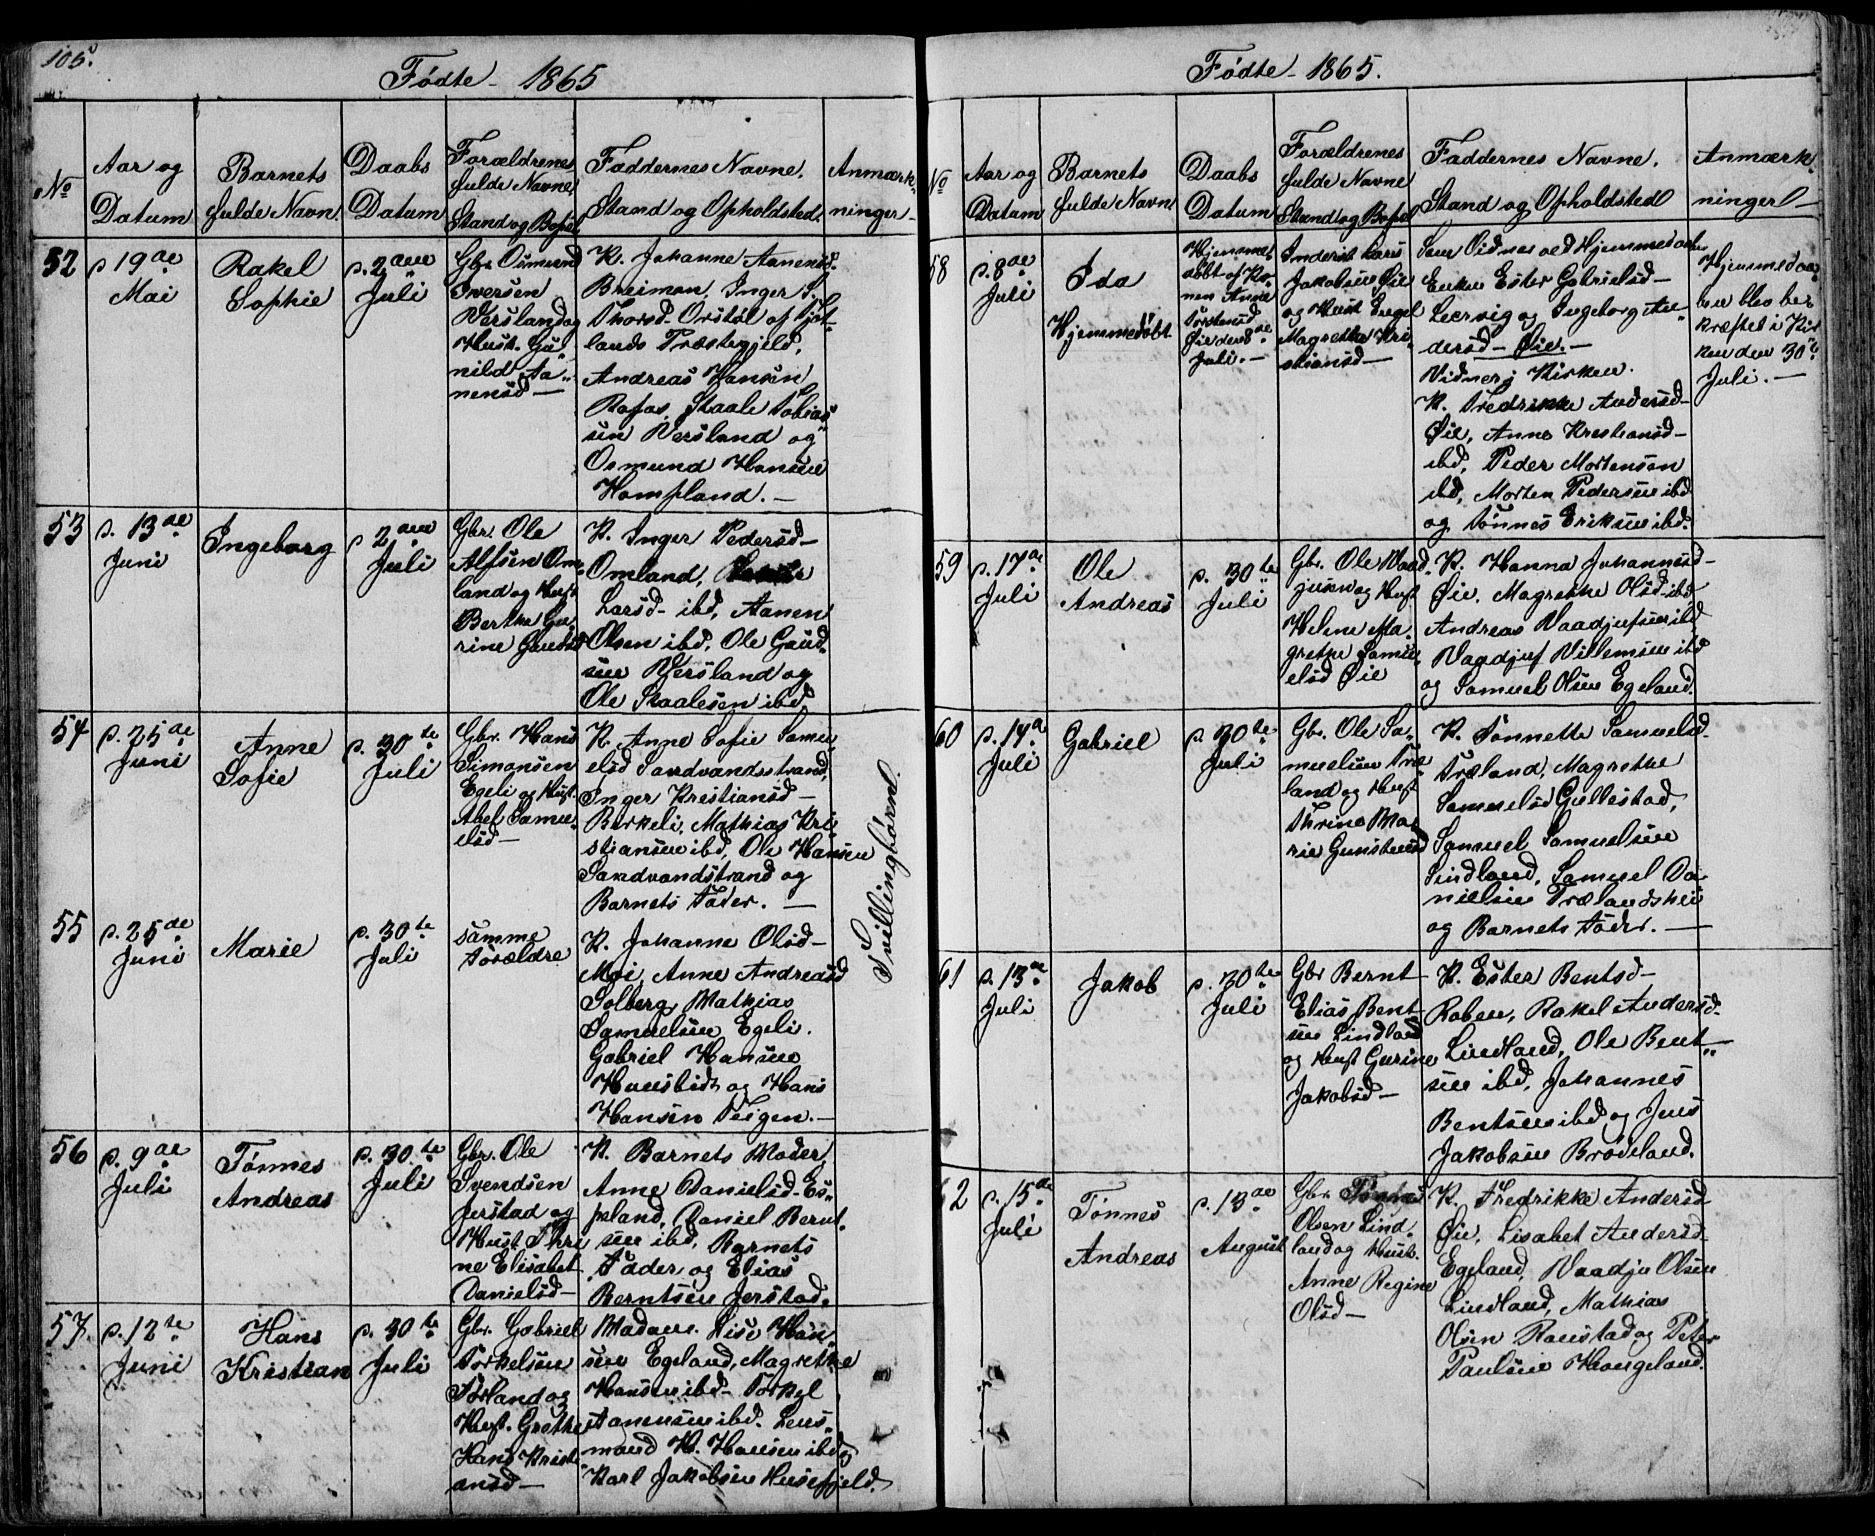 105.
Fødte - 1865
No
Aar og
Datum
Barnets
fulde Navn.
Daabs
Datum
Forældrenes
fulde Navne,
Stand og Bopæl
Faddernes Navne.
Stand og Opholdsted.
Anmærk-
ninger
52
d. 19de
Mai
Rakel
Sophie
d. 2den
Juli
Gbr. Osmund
Iversen
Versland og
Hust. Gu-
nild Aa-
nensd -
K. Johanne Aanensd.
Breimon, Inger S.
Thorsd. Orstøl af Fjot-
lands Præstegjeld,
Andreas Hansen
Røfos, Staale Tobias-
sen Versland og
Osmund Hansen
Hompland. -
53
d. 13de
Juni
Ingeborg
d. 2den
Juli
Gbr. Ole
Alfsen Om-
land og Hust
Berthe Gu-
rine Gaudsd
K. Inger Pedersd -
Omland,
Larsd - ibd, Aanen
Olsen ibd, Ole Gaud-
sen Versland og
Ole Staalesen ibd.
54
d. 25de
Juni
Anne
Sofie
d. 30te
Juli
Gbr. Hans
Simonsen
Egeli og Hust.
Abel Samu-
elsd -
K. Anne Sofie Samu-
elsd Sandvandsstrand,
Inger Krestiansd -
Birkeli, Mathias Kri-
stiansen ibd, Ole Hansen
Sandvandstrand og
Barnets Fader. -
Tvillingbørn.
55
d. 25de
Juni
Marie
d. 30te
Juli
samme
Forældre
K. Johanne Olsd -
Moi, Anne Andreasd
Solberg, Mathias
Samuelsen Egeli.
Gabriel Hansen
Hunsbedt og Hans
Hansen Teigen. -
56
d. 9de
Juli
Tønnes
Andreas
d. 30te
Juli
Gbr. Ole
Svendsen
Jerstad og
Hust. Thri
ne Elisabet
Danielsd -
K. Barnets Moder,
Anne Danielsd - Es-
peland, Daniel Bernt-
sen ibd, Barnets
Fader og Elias
Berntsen Jerstad.
57.
d. 12te
Juni
Hans
Kristian
d. 30te
Juli
Gbr. Gabriel
Torkelsen
Førland og
Hust. Grethe
Hans Kristi
ansd -
Madam. Lise Han-
sen Egeland, Magrethe
Hansen ibd - Torkel
Aanensen ibd. Lens-
mand H. Hansen ibd og
Karl Jakobsen Husefjeld.
Fødte - 1865.
No
Aar og
Datum
Barnets
fulde Navn
Daabs
Datum
Forældrenes
fulde Navne
Stand og Bopæl
Faddernes Navne.
Stand og Opholdsted
Anmærk-
ninger -
58
d. 8de
Juli
Ida
Hjemmedøbt
Hjemme-
døbt af Ko-
nen Anne
Torstensd
Øie den 8de
Juli. -
Inderst Lars
Jakobsen Øie
og Hust Engel
Magrethe Kri-
stiansd -
Som Vidner ved Hjemmedaaben
Enken Ester Gabrielsd -
Leervig og Ingeborg An-
dersd - Øie. -
Vidner i Kirken.
K. Fredrikke Andersd -
Øie, Anne Krestiansd -
ibd, Peder Mortensen
ibd, Morten Pedersen ibd
og Tønnes Eriksen ibd.
Hjemmedaa-
ben blev be-
kræftet i Kir
ken den 30te
Juli. -
59
d. 17de
Juli
Ole
Andreas
d. 30te
Juli
Gbr. Ole Vaad-
jusen og Hust
Helene Ma-
grethe Samu-
elsd Øie
K. Hanna Johannesd -
Øie, Magrethe Olsd - ibd
Andreas Vaadjufsen ibd
Vaadjuf Villemsen ibd
og Samuel Olsen Egeland.
60
d. 14de
Juli
Gabriel
d. 30te
Juli
Gbr. Ole Sa-
muelsen Træ-
land og Hust
Thrine Ma-
rie Gunstensd
K. Tonnette Samuelsd.
Træland, Magrethe
Samuelsd Gullestad,
Samuel Samuelsen
Sindland, Samuel Da-
nielsen Trælandshei
og Barnets Fader. -
61
d. 13de
Juli
Jakob
d. 30te
Juli
Gbr Bernt
Elias Bent-
sen Lindland
og Hust Gurine
Jakobsd -
K. Ester Bentsd -
Roben, Rakel Andersd -
Lindland, Ole Bent-
sen ibd, Johannes
Bentsen ibd og Jens
Jakobsen Brødeland.
62
d. 15de
Juli
Tønnes
Andreas
d. 13de
August
Gbr. Tønnes
Olsen Lind-
land og Hust.
Anne Regine
Olsd -
K. Fredrikke Andersd
Øie, Lisabet Andersd -
Egeland, Vaadju Olsen
Lindland, Mathias
Olsen Ronstad og Peter
Paulsen Haugeland.